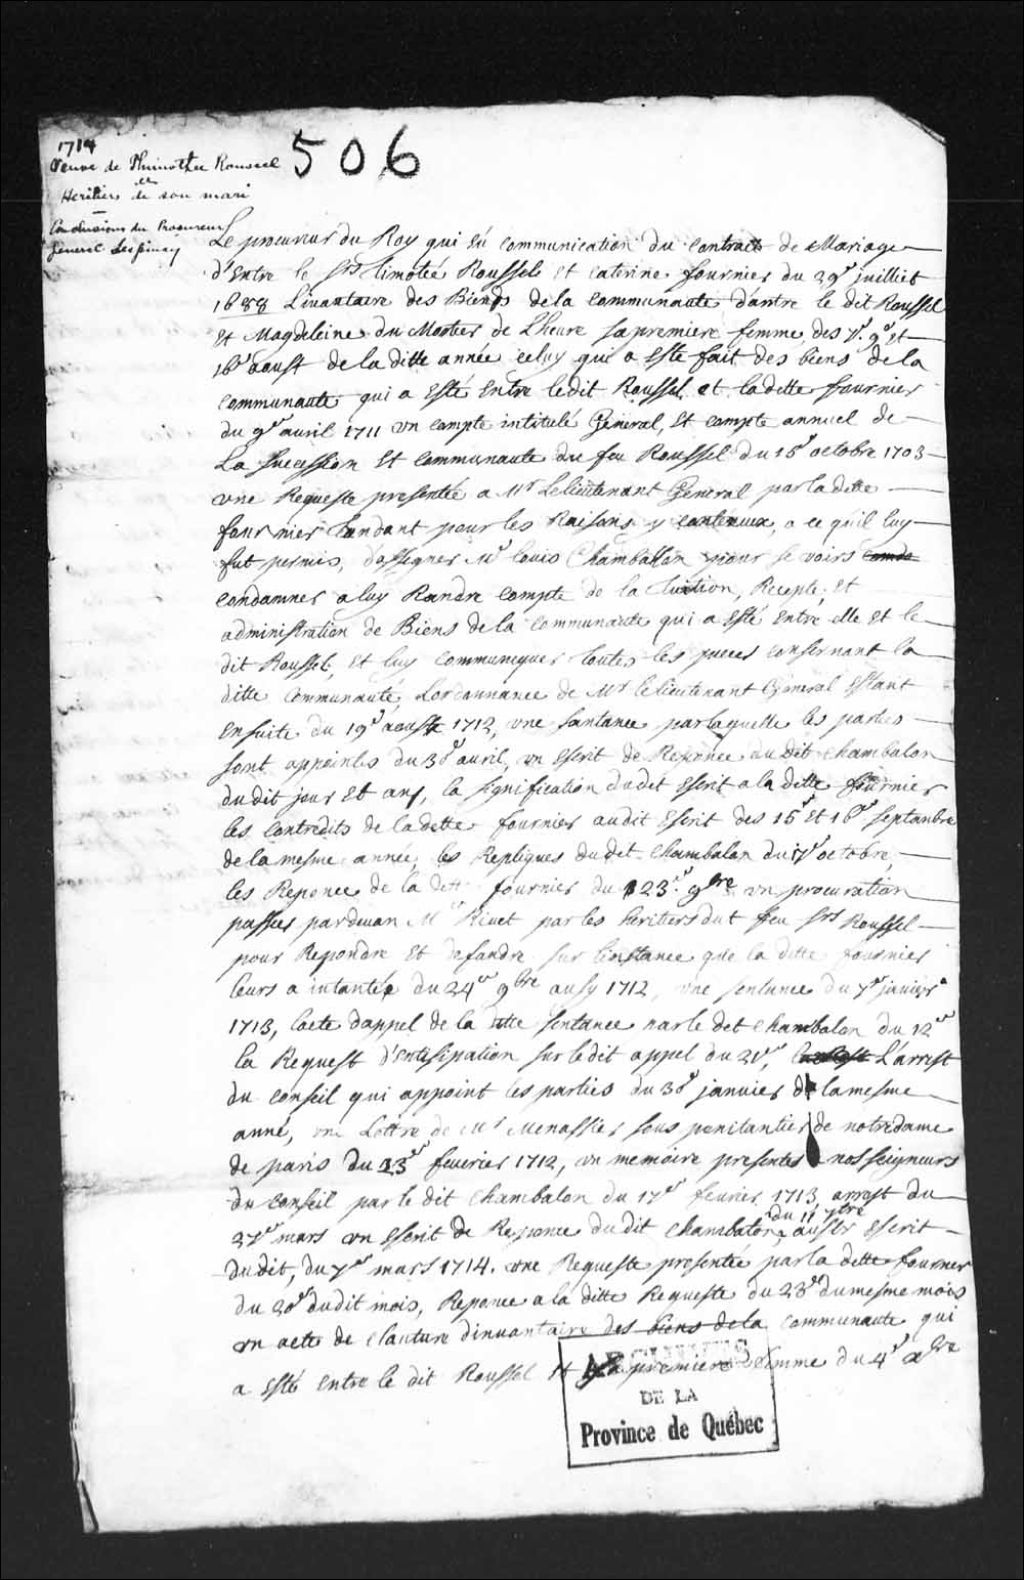 506
1714
Veuve de Thimothee Roussel
et
Heritiers de son mari
Conclusions du Procureur
General Lespinay
Le procureur du Roy qui eü communication du contract de Mariage
d'Entre le srs timoteé Roussel et caterine fournier du 29e juilliet
1688 L'inuantaire des Biens de la communauté d'antre le dit Roussel
et Magdeleine du Mortier de Lheure sa premiere femme des 7e. 9e et
16e aoust de la ditte année celuy qui a esté fait des biens de la
communauté qui a esté Entre ledit Roussel et la ditte fournier
du 9e auril 1711 vn compte intitulé General, et compte annuel de
La sucession et communauté du feu Roussel du 15e octobre 1703
vne Requeste presentée a Mr Le lieutenant General par la ditte
fournier tandant pour les Raisons y contenuex, a ce qu'il luy
fut permis, d'assigner Mr louis Chambalon pour se voirs conda
condamner a luy Randre compte de la Recepte, et
administration de Biens de la communauté qui a esté entre elle et le
dit Roussel, et luy communiquer toutes les pieces consernant la
ditte communauté, L'ordonnance de Mr le lieutenant General estant
ensuite du 19e aoust 1712, vne santance par laquelle les parties
sont appointes du 30e auril, vn escrit de Reponce du dit chambalon
du dit jour et an, la signification dudet escrit a la ditte fournier
les contredits de la ditte fournier audit escrit des 15e et 16e septanbre
de la mesme année, les Repliques du det chambalon du octobre,
les Reponce de la ditte fournier du 23e. 9bre vn procuration
passée pardeuan Me Riuet par les heritiers dut feu srs Roussel
pour Repondre et defandre sur l'instance que la ditte fournier
leurs a intantée du 24e 9bre ausy 1712, vne sentence du 7e janvier
1713, l'acte d'appel de la ditte sentance par le det chambalon du 12e
la Request d'entisipation sur le dit appel du 21e, L'arrest
du conseil qui appoint les parties du 30e janvier de la mesme
anné, vne Lettre de Mr Menassier sous penitantier de notredame
de paris du 23e feurier 1712, vn memoire presentes a nosseigneurs
du conseil par le dit chambalon du 17e feurier 1713, arrest du
27e mars vn escrit de Reponce du dit chambalon, du 11 7bre autre escrit
du dit, du 7e mars 1714. vne Requeste presentée par la ditte fournier
du 20e dudit mois, Reponce a la ditte Requeste du 23e du mesme mois
vn acte de clauture d'inuantaire des biens de la communauté qui
a esté entre le dit Roussel et sa premiere femme du 4e xbre
ARCHIVES
DE LA
Province de Québec